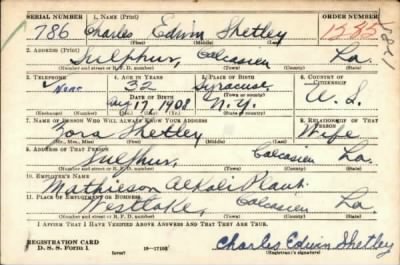 SERIAL NUMBER 1. NAME (Print) ORDER NUMBER
786 Charles Edwin Shetley 1285
(First) (Middle) (Last)
2. ADDRESS (Print)
Sulphur, Calcasieu La.
(Number and street or R. F. D. number) (Town) (County) (State)
3. TELEPHONE 4. AGE IN YEARS 5. PLACE OF BIRTH 6. COUNTRY OF CITIZENSHIP
None 32 Syracuse,
DATE OF BIRTH
Aug 17, 1908 N.Y. U.S.
(Mo.) (Day) (Yr.)
7. NAME OF PERSON WHO WILL ALWAYS KNOW YOUR ADDRESS 8. RELATIONSHIP OF THAT PERSON
Zora Shetley Wife
(Mr., Mrs., Miss) (First) (Middle) (Last)
9. ADDRESS OF THAT PERSON
Sulphur, Calcasieu La.
(Number and street or R. F. D. number) (Town) (County) (State)
10. EMPLOYER'S NAME
Mathieson Alkali Plant.
11. PLACE OF EMPLOYMENT OR BUSINESS
Westlake, Calcasieu La.
(Number and street or R. F. D. number) (Town) (County) (State)
I AFFIRM THAT I HAVE VERIFIED ABOVE ANSWERS AND THAT THEY ARE TRUE.
REGISTRATION CARD
D. S. S. Form 1 (over) Charles Edwin Shetley
(Registrant's signature)